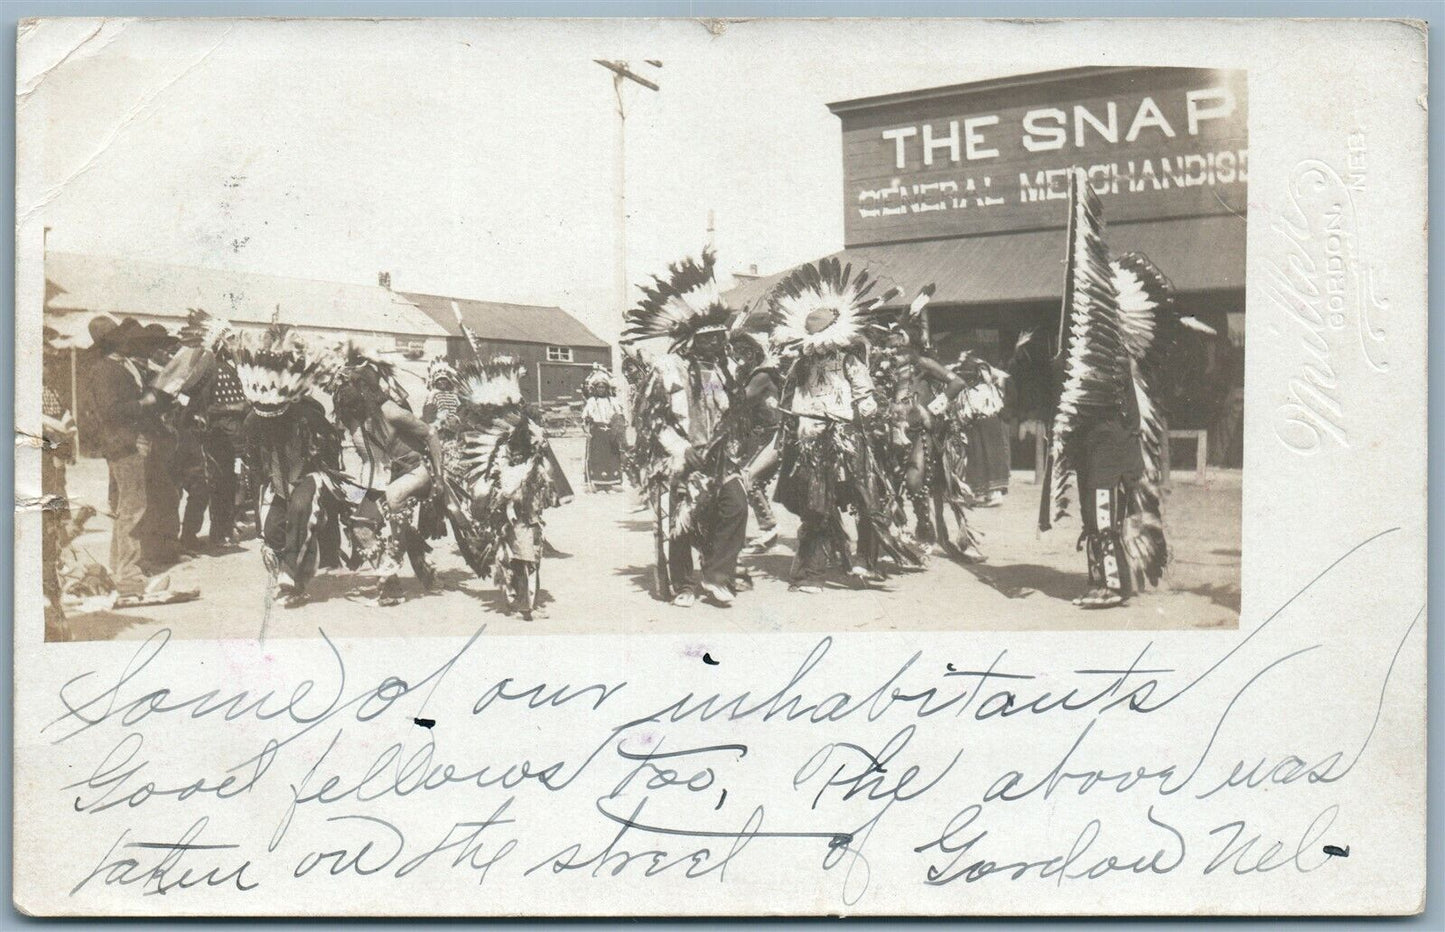 THE SNAP
GENERAL MERCHANDISE
Miller
GORDON, NEB
Some of our inhabitants
Good fellows too, The above was
taken on the street of Gordon Neb.